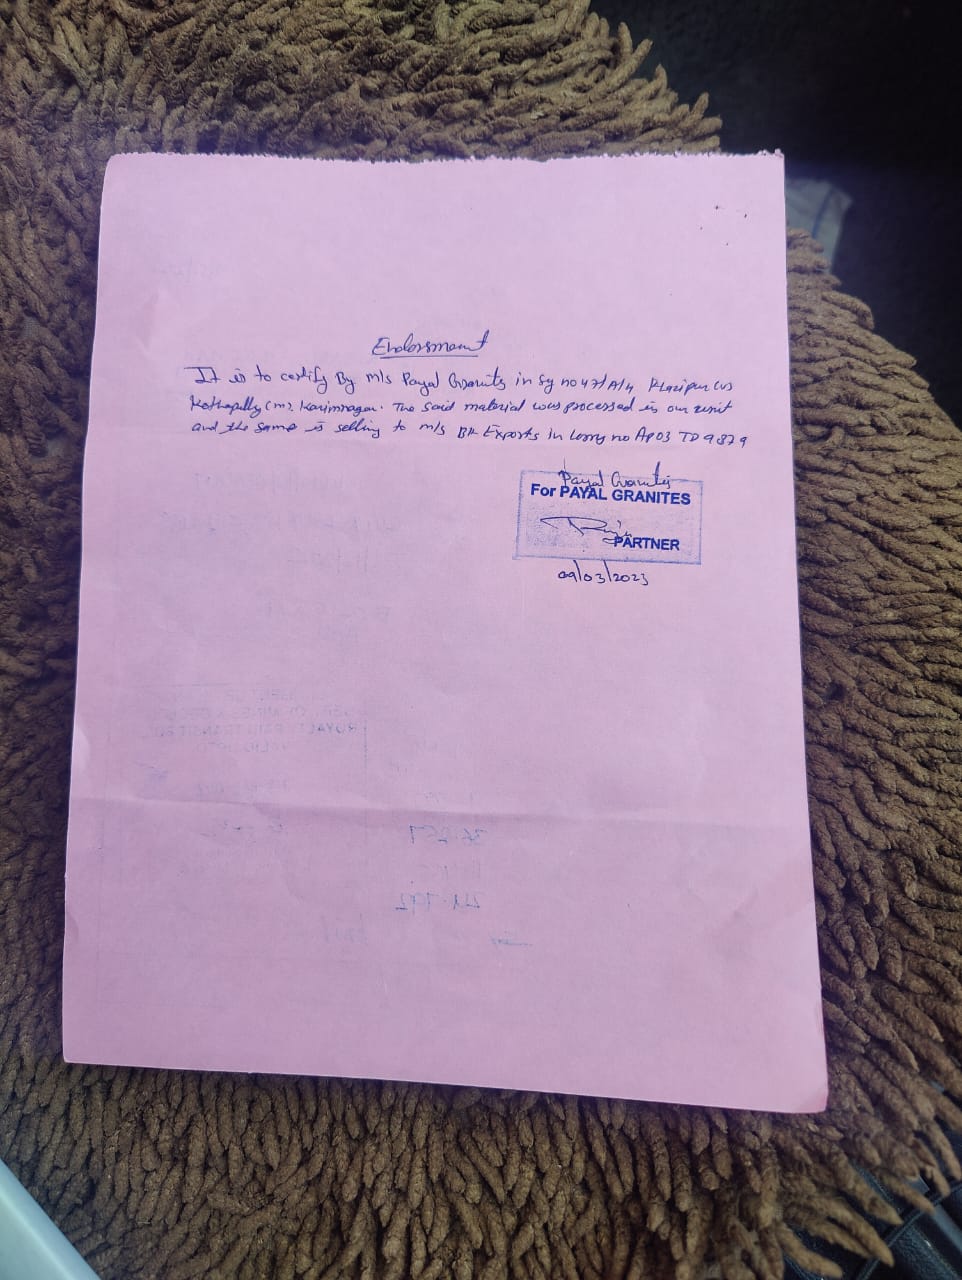 Endorsment
It is to certify By m/s Payal Granits in Sy no 471/A/4 (V)
Kothapally (m), Karimnagar. The said material was processed in our unit
and the same is selling to m/s BK Exports in lorry no AP03 TD 9879
Payal Granites
For PAYAL GRANITES
PARTNER
09/03/2023
ROYALTY PAID TRANSIT FORM
VALID UPTO